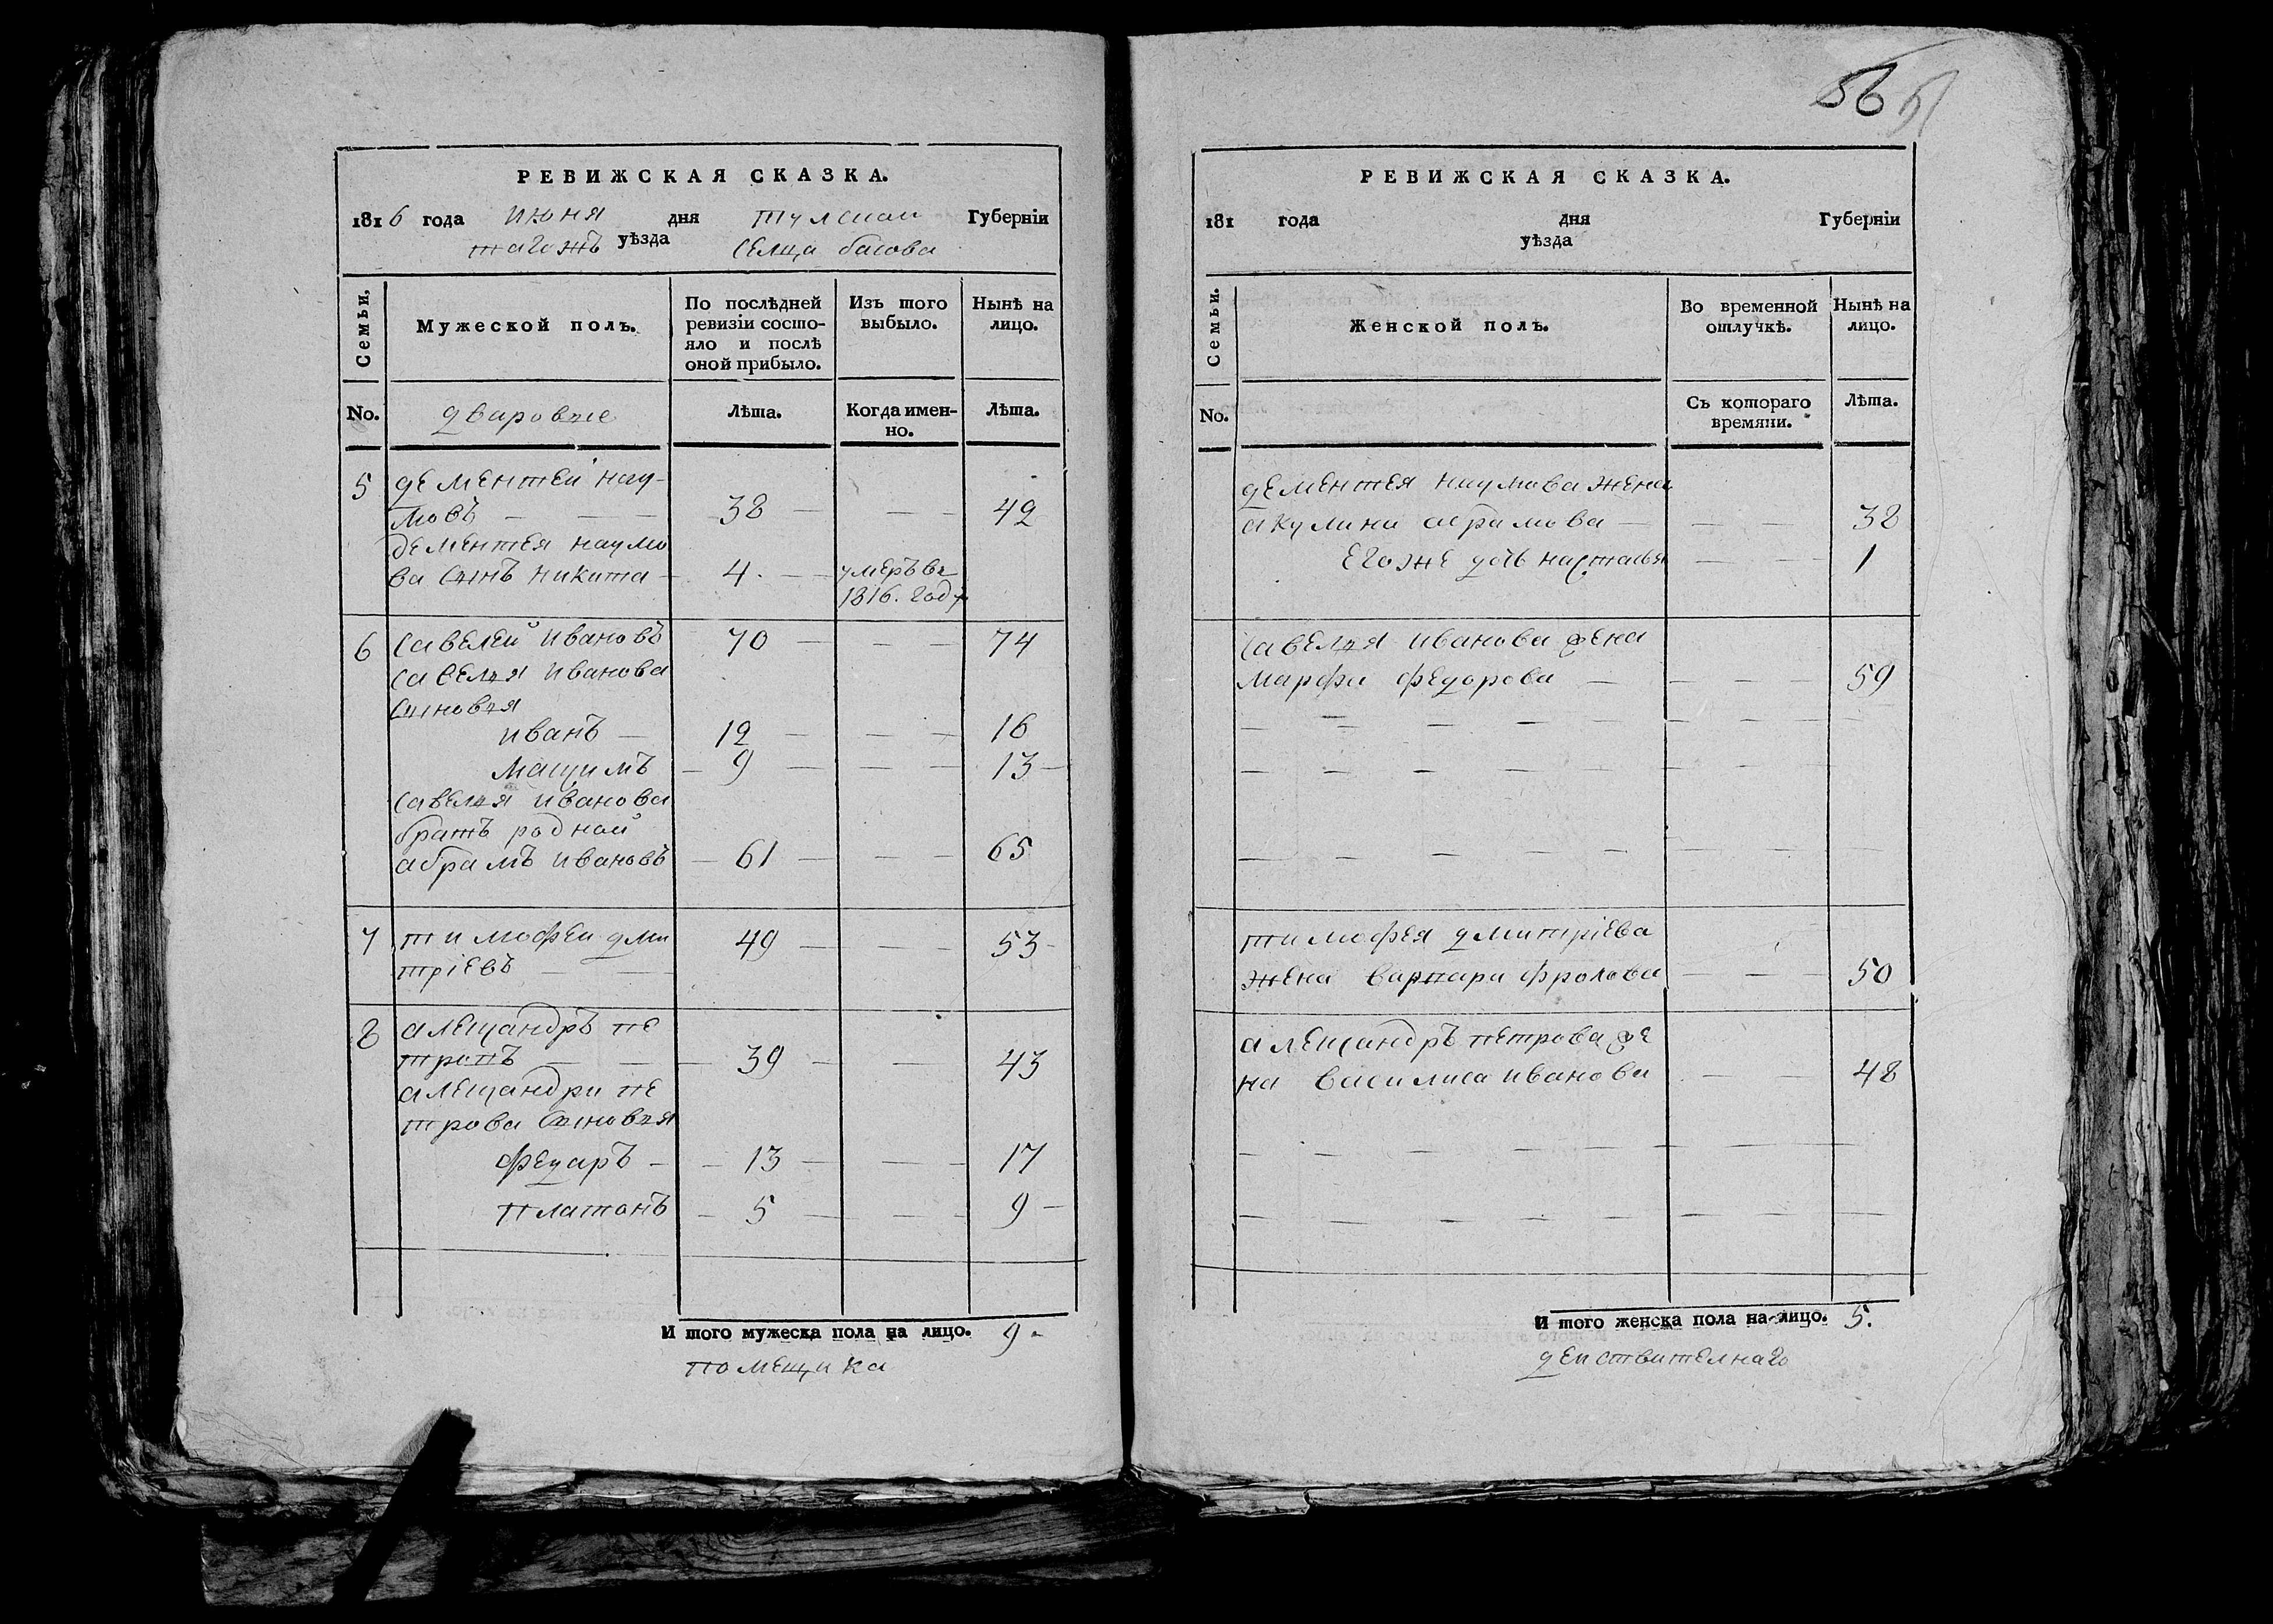 РЕВИЖСКАЯ СКАЗКА.
1816 года июня дня тулской Губерніи
тагожъ уѣзда селца басова
Семьи.
Мужеской полъ.
По послѣдней ревизіи состо-
яло и послѣ
оной прибыло.
Изъ того
выбыло.
Нынѣ на
лицо.
No. дваровые Лѣта. Когда имен-
но. Лѣта.
5 дементей нау-
мовъ — — — 38 — — — 42
дементея наумо
ва сынъ никита — 4. — умеръ въ
1816. году
6 савелей ивановъ 70 — — — 74
савелья иванова
сыновья
иванъ — 12 — — — 16
мацимъ — 9 — — — 13 —
савелья иванова
братъ родной
абрамъ ивановъ — 61 — — — 65
7 тимофей дми
тріевъ — — 49 — — — 53 -
8 алецандръ пе
тровъ — — — 39 — — 43
алецандра пе
трова сыновья
федаръ — — 13 — — — 17
платонъ — 5 — — — 9 —
И того мужеска пола на лицо. 9 -
помещика
56 51
РЕВИЖСКАЯ СКАЗКА.
181 года дня Губерніи
уѣзда
Семьи.
Женской полъ.
Во временной
отлучкѣ.
Нынѣ на
лицо.
No. Съ котораго
времяни. Лѣта.
дементея наумова жена
акулина абрамова — — — 38
егоже дочь насталья — — 1
савелья иванова жена
марфа федорова — — — — 59
тимофея дмитріева
жена варвара фролова — — — 50
алецандръ петрова же
на василиса иванова — — 48
И того женска пола на лицо. 5.
действителнаго